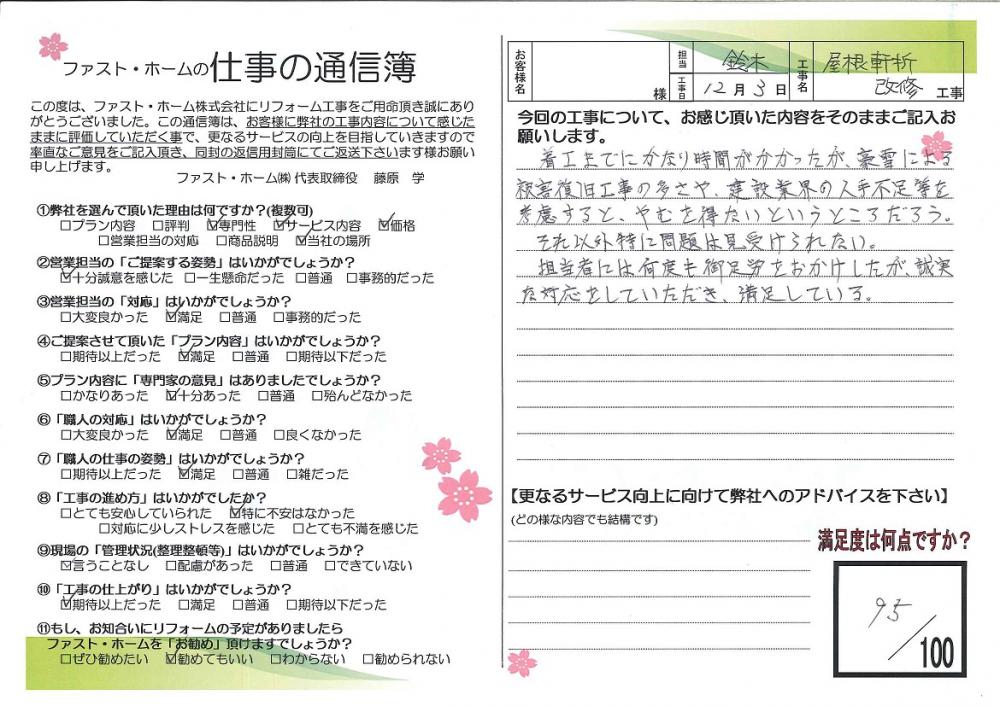 ファスト・ホームの仕事の通信簿
この度は、ファスト・ホーム株式会社にリフォーム工事をご用命頂き誠にあり
がとうございました。この通信簿は、お客様に弊社の工事内容について感じた
ままに評価していただく事で、更なるサービスの向上を目指していきますので
率直なご意見をご記入頂き、同封の返信用封筒にてご返送下さいます様お願い
申し上げます。
ファスト・ホーム㈱ 代表取締役 藤原 学
①弊社を選んで頂いた理由は何ですか?(複数可)
□プラン内容 □評判 ☑専門性 ☑サービス内容 ☑価格
□営業担当の対応 □商品説明 ☑当社の場所
②営業担当の「ご提案する姿勢」はいかがでしょうか?
☑十分誠意を感じた □一生懸命だった □普通 □事務的だった
③営業担当の「対応」はいかがでしょうか?
□大変良かった ☑満足 □普通 □事務的だった
④ご提案させて頂いた「プラン内容」はいかがでしょうか?
□期待以上だった ☑満足 □普通 □期待以下だった
⑤プラン内容に「専門家の意見」はありましたでしょうか?
□かなりあった ☑十分あった □普通 □殆んどなかった
⑥「職人の対応」はいかがでしょうか?
□大変良かった ☑満足 □普通 □良くなかった
⑦「職人の仕事の姿勢」はいかがでしょうか?
□期待以上だった ☑満足 □普通 □雑だった
⑧「工事の進め方」はいかがでしたか?
□とても安心していられた ☑特に不安はなかった
□対応に少しストレスを感じた □とても不満を感じた
⑨現場の「管理状況(整理整頓等)」はいかがでしょうか?
☑言うことなし □配慮があった □普通 □できていない
⑩「工事の仕上がり」はいかがでしょうか?
☑期待以上だった □満足 □普通 □期待以下だった
⑪もし、お知合いにリフォームの予定がありましたら
ファスト・ホームを「お勧め」頂けますでしょうか?
□ぜひ勧めたい ☑勧めてもいい □わからない □勧められない
お客様名 様 担当 鈴木 工事日 12月3日 工事名 屋根軒析 改修 工事
今回の工事について、お感じ頂いた内容をそのままご記入お
願いします。
着工までにかなり時間がかかったが、豪雪による
被害復旧工事の多さや、建設業界の人手不足等を
考慮すると、やむを得ないというところだろう。
それ以外特に問題は見受けられない。
担当者には何度も御足労をおかけしたが、誠実
な対応をしていただき、満足している。
【更なるサービス向上に向けて弊社へのアドバイスを下さい】
(どの様な内容でも結構です)
満足度は何点ですか?
95/100